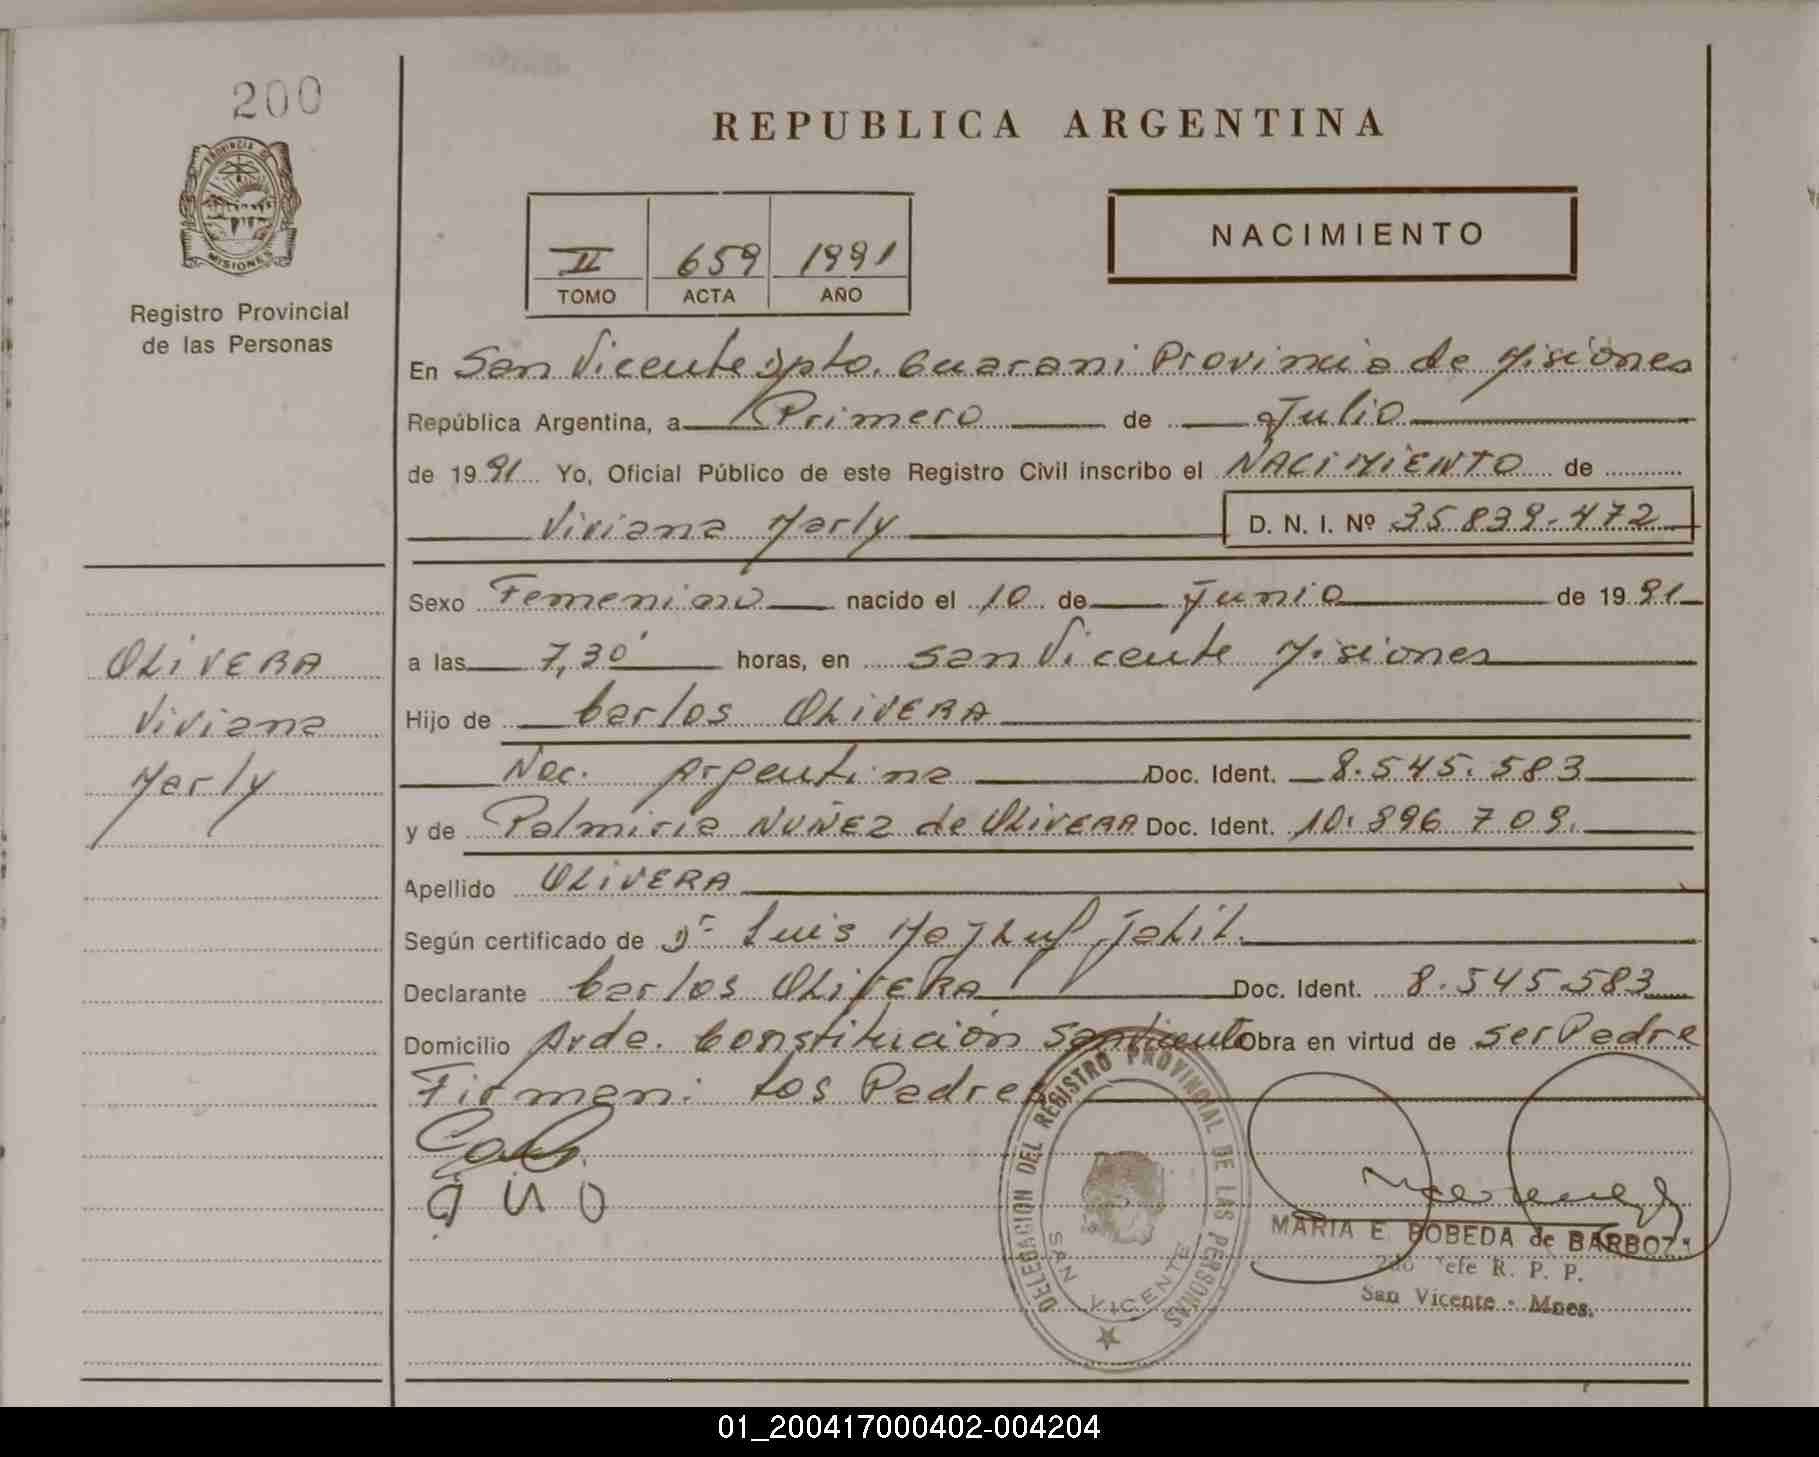 200
PROVINCIA DE
MISIONES
Registro Provincial
de las Personas
OLIVERA
Viviana
Marly
REPUBLICA ARGENTINA
II 659 1991
TOMO ACTA AÑO
NACIMIENTO
En San Vicente Dpto. Guarani Provincia de Misiones
República Argentina, a Primero de Julio
de 1991 Yo, Oficial Público de este Registro Civil inscribo el NACIMIENTO de
Viviana Marly D. N. I. Nº 35.839.472
Sexo Femenino nacido el 10 de Junio de 1991
a las 7,30 horas, en San Vicente Misiones
Hijo de Carlos OLIVERA
Nac. Argentina Doc. Ident. 8.545.583
y de Palmiria NUÑEZ de OLIVERA Doc. Ident. 10.896 709.
Apellido OLIVERA
Según certificado de Dr Luis
Declarante Carlos OLIVERA Doc. Ident. 8.545.583
Domicilio Avda. Constitución San Vicente Obra en virtud de ser Padre
Firman: Los Padres
DELEGACION DEL REGISTRO PROVINCIAL DE LAS PERSONAS
SAN VICENTE
MARIA E BOBEDA de BARBOZA
2do Jefe R. P. P.
San Vicente - Mnes.
01_200417000402-004204